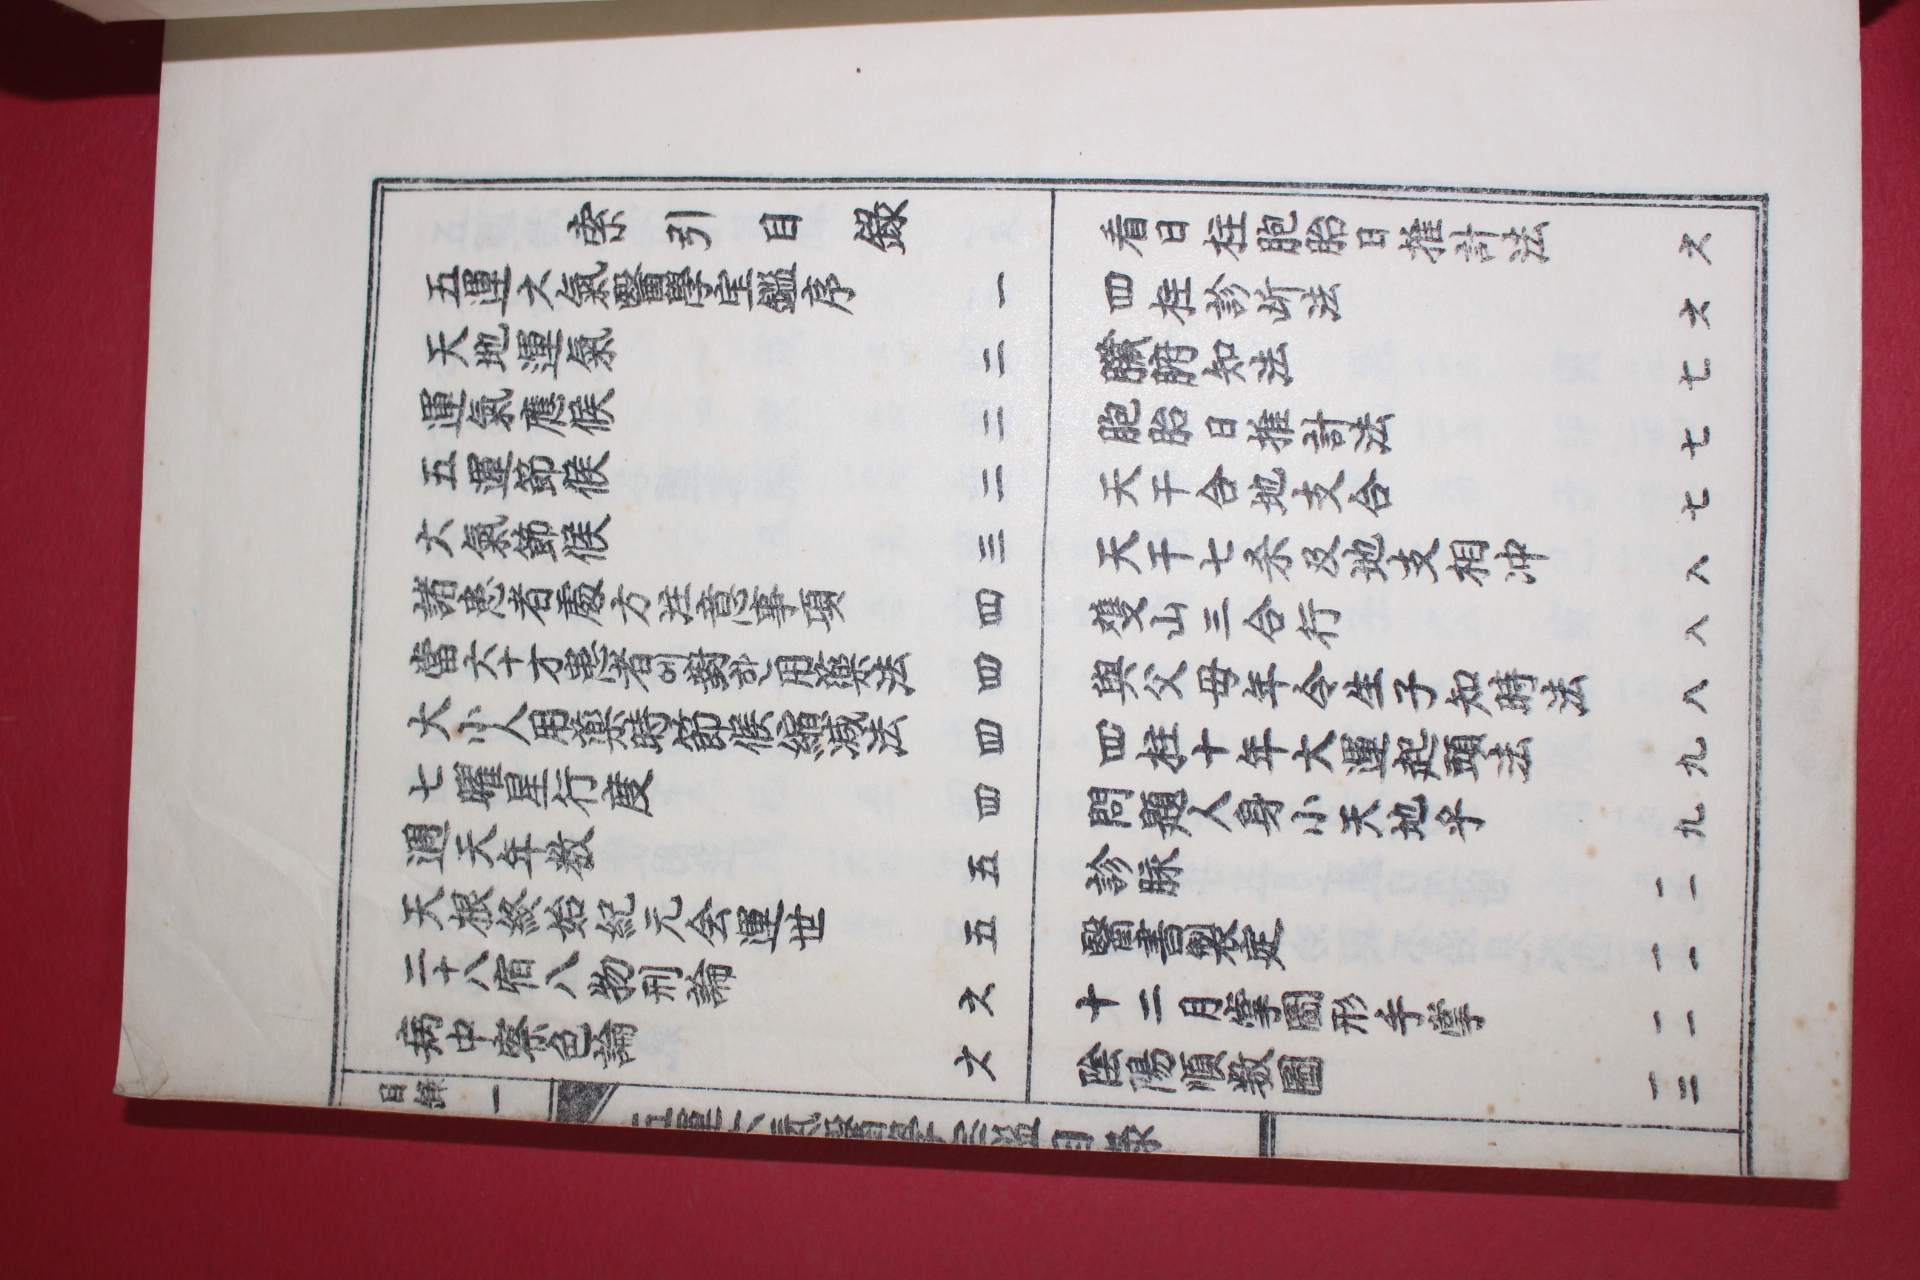 索引目錄
五運六氣醫學宝鑑序 一
天地運氣 二
運氣應候 二
五運節候 二
六氣節候 三
諸患者處方注意事項 四
當六十才患者이對한用藥法 四
大小人用藥時節候縮减法 四
七曜星行度 四
週天年数 五
天根終始紀元会運世 五
二十八宿八物刑論 六
病中察色論 六
着日柱胞胎日推計法 六
四柱診斷法 六
臟腑知法 七
胞胎日推計法 七
天干合地支合 七
天干七杀及地支相冲 八
雙山三合行 八
與父母年令生子知時法 八
四柱十年大運起頭法 九
問題人身小天地乎 九
診脉 一一
醫書製定 一一
十二月掌圖形手掌 一一
陰陽順数圖 一三
目錄 一
五運六氣醫學宝鑑目錄